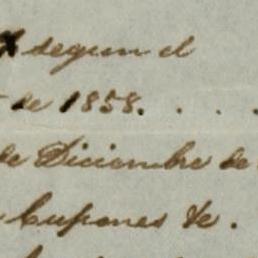 segun el
de 1858. . . .
de Diciembre de
Cupones &c.